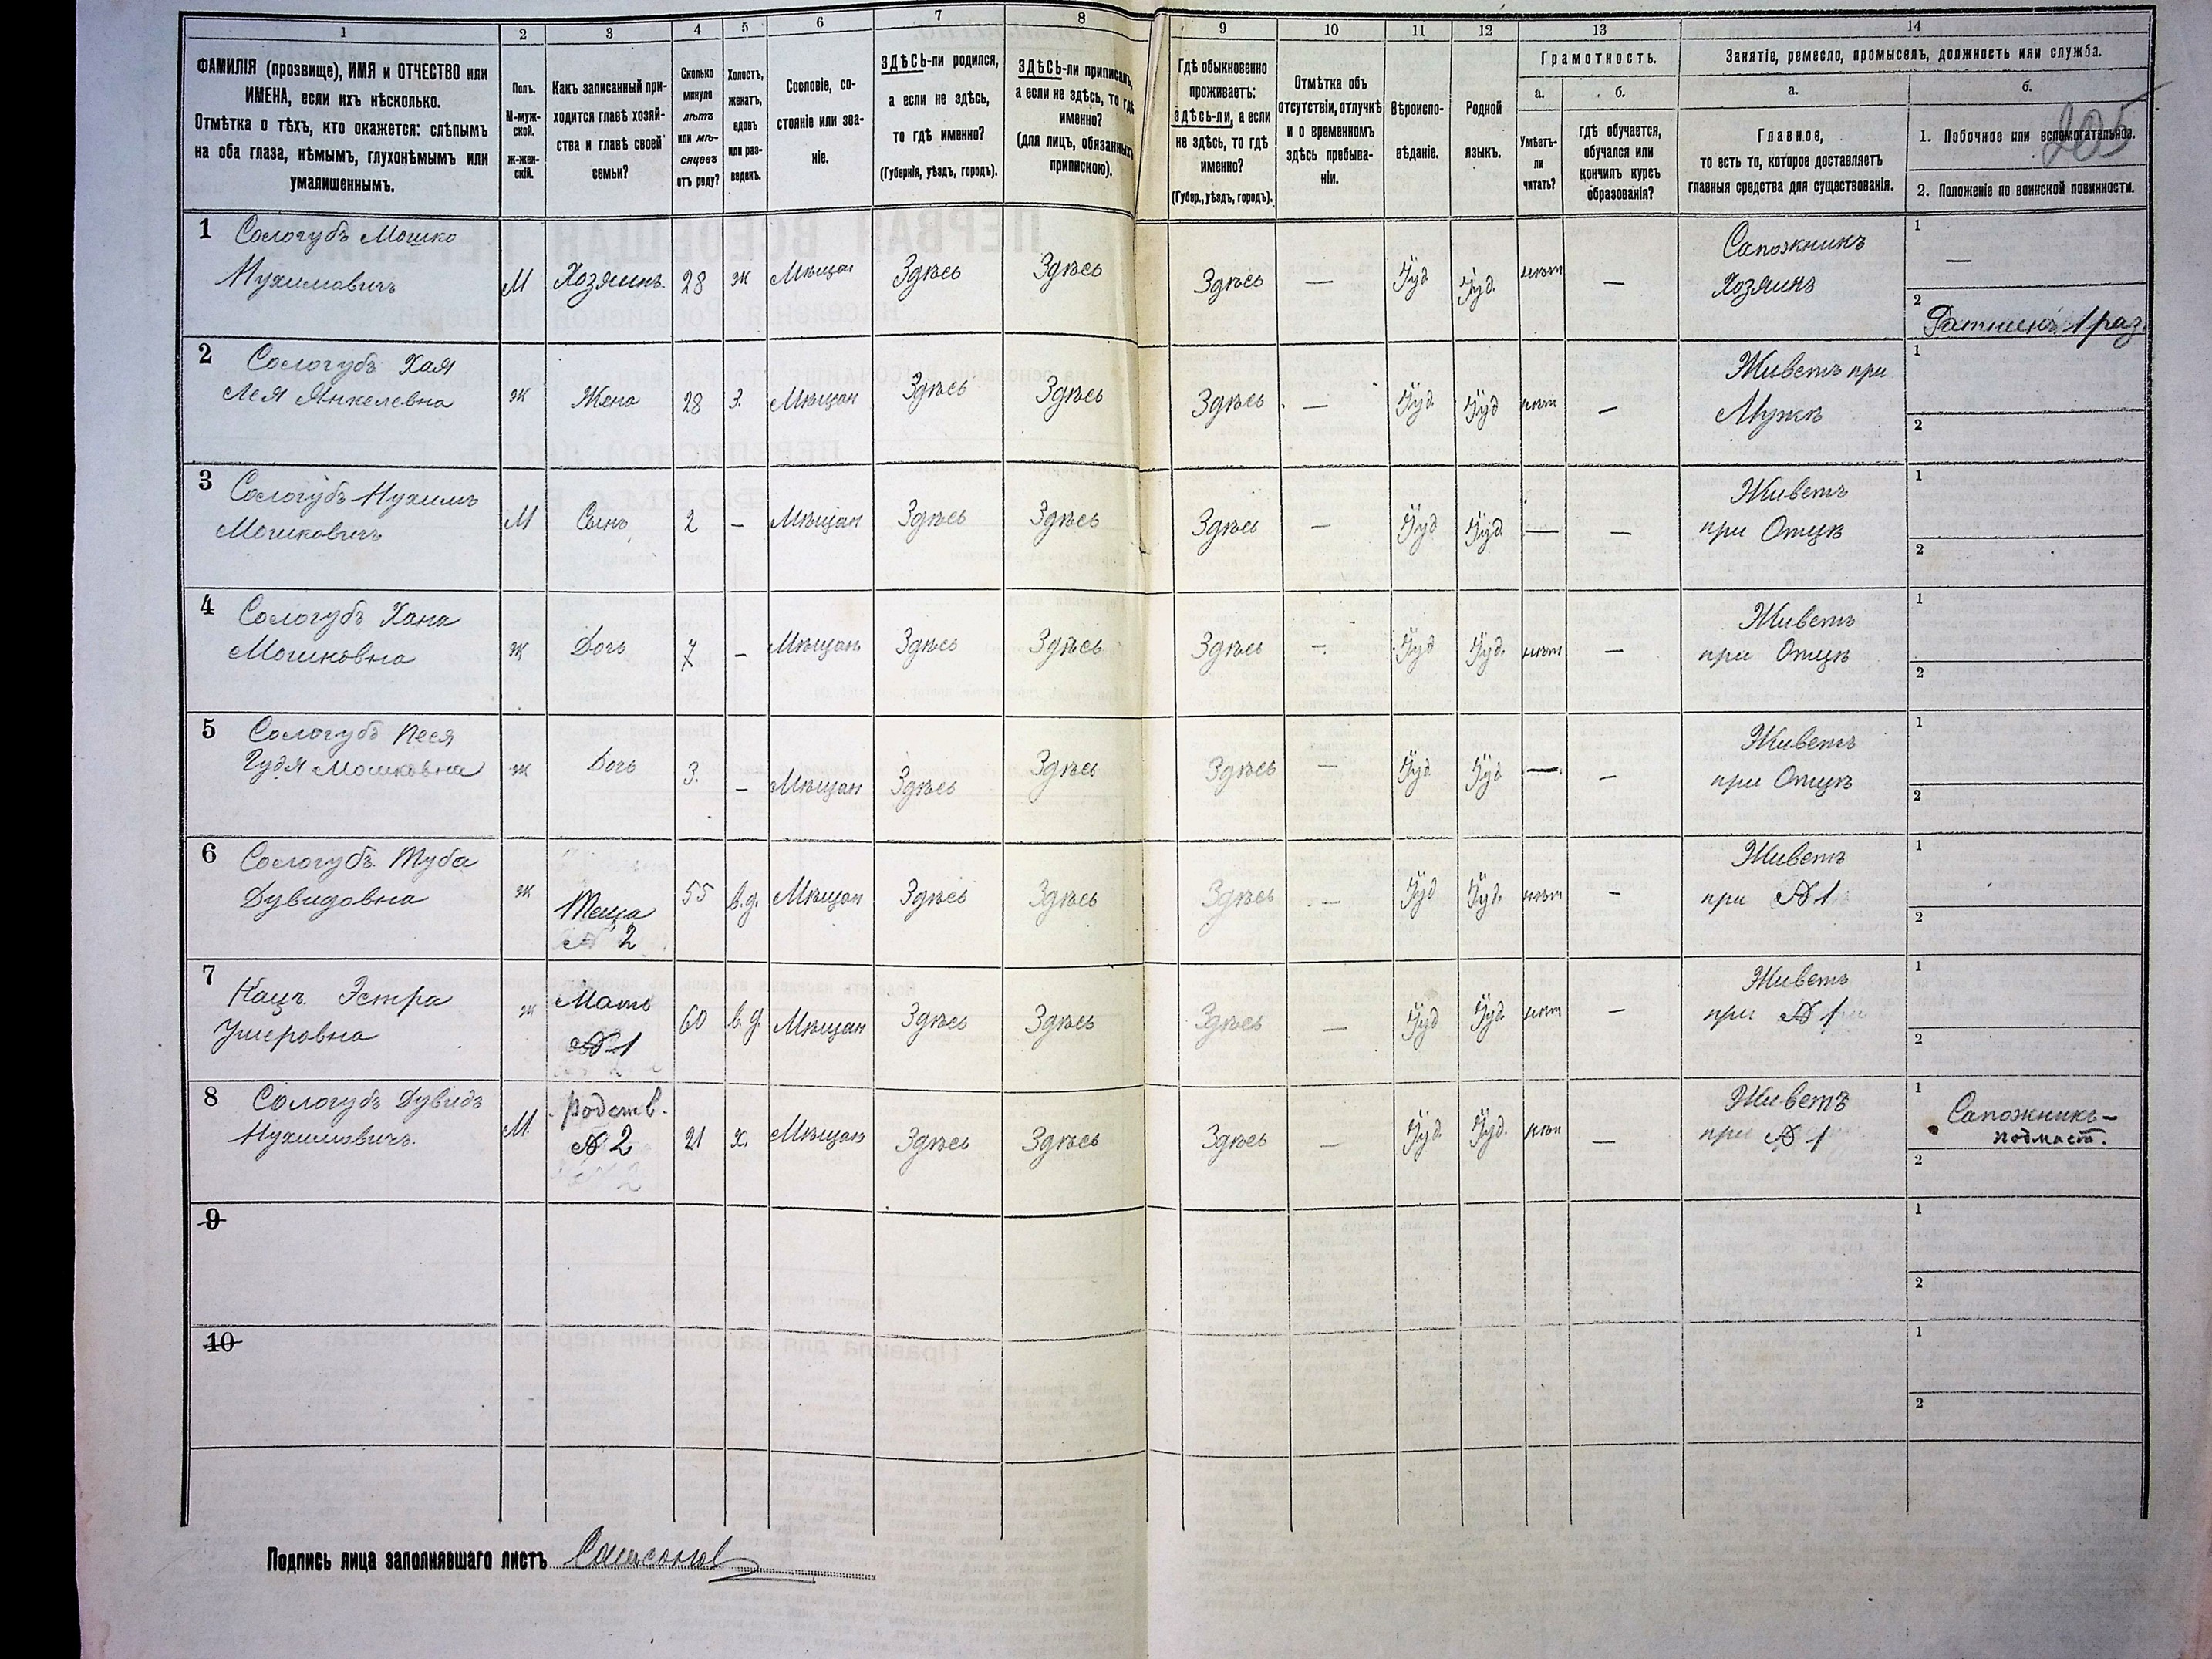 1
2
3
4
5
6
7
8
9
10
11
12
13
14
ФАМИЛІЯ (прозвище), ИМЯ и ОТЧЕСТВО или
ИМЕНА, если ихъ нѣсколько.
Отмѣтка о тѣхъ, кто окажется: слѣпымъ
на оба глаза, нѣмымъ, глухонѣмымъ или
умалишеннымъ.
Полъ.
М-муж-
ской.
Ж-жен-
скій.
Какъ записанный при-
ходится главѣ хозяй-
ства и главѣ своей
семьи?
Сколько
минуло
лѣтъ
или мѣ-
сяцевъ
отъ роду?
Холостъ,
женатъ,
вдовъ
или раз-
веденъ.
Сословіе, со-
стояніе или зва-
ніе.
ЗДѢСЬ-ли родился,
а если не здѣсь,
то гдѣ именно?
(Губернія, уѣздъ, городъ).
ЗДѢСЬ-ли приписанъ,
а если не здѣсь, то гдѣ
именно?
(для лицъ, обязанныхъ
припискою).
Гдѣ обыкновенно
проживаетъ:
ЗДѢСЬ-ли, а если
не здѣсь, то гдѣ
именно?
(Губер., уѣздъ, городъ).
Отмѣтка объ
отсутствіи, отлучкѣ
и о временномъ
здѣсь пребыва-
ніи.
Вѣроиспо-
вѣданіе.
Родной
языкъ.
Грамотность.
а.
Умѣетъ-
ли
читать?
б.
гдѣ обучается,
обучался или
кончилъ курсъ
образованія?
Занятіе, ремесло, промыселъ, должность или служба.
а.
Главное,
то есть то, которое доставляетъ
главныя средства для существованія.
б.
205
1. Побочное или вспомогательное.
2. Положеніе по воинской повинности.
1 Сологубъ Мошко
Нухимовичъ
М
Хозяинъ
28
ж
Мѣщан
Здѣсь
Здѣсь
Здѣсь
—
Іуд
Іуд.
нѣт
—
Сапожникъ
Хозяинъ
1
—
2
Ратникъ 1 раз.
2 Сологубъ Хая
Лея Янкелевна
ж
Жена
28
З.
Мѣщан
Здѣсь
Здѣсь
Здѣсь
—
Іуд
Іуд
нѣт
—
Живетъ при
Мужѣ
1
2
3 Сологубъ Нухимъ
Мошковичъ
М
Сынъ
2
—
Мѣщан
Здѣсь
Здѣсь
Здѣсь
—
Іуд
Іуд
—
—
Живетъ
при Отцѣ
1
2
4 Сологубъ Хана
Мошковна
ж
Дочь
7
—
Мѣщан
Здѣсь
Здѣсь
Здѣсь
—
Іуд
Іуд.
нѣт
—
Живетъ
при Отцѣ
1
2
5 Сологубъ Песя
Гудя Мошковна
ж
Дочь
3.
—
Мѣщан
Здѣсь
Здѣсь
Здѣсь
—
Іуд
Іуд
—
—
Живетъ
при Отцѣ
1
2
6 Сологубъ Туба
Дувидовна
ж
Теща
№ 2
55
в.д.
Мѣщан
Здѣсь
Здѣсь
Здѣсь
—
Іуд
Іуд.
нѣт
—
Живетъ
при № 1
1
2
7 Кацъ Эстра
Ушеровна
ж
Мать
№ 1
60
в.д.
Мѣщан
Здѣсь
Здѣсь
Здѣсь
—
Іуд
Іуд.
нѣт
—
Живетъ
при № 1
1
2
8 Сологубъ Дувидъ
Нухимовичъ.
М.
Родств.
№ 2
21
х.
Мѣщан
Здѣсь
Здѣсь
Здѣсь
—
Іуд.
Іуд.
нѣт
—
Живетъ
при № 1
1
Сапожникъ-
подмаст.
2
9
1
2
10
1
2
Подпись лица заполнявшаго листъ